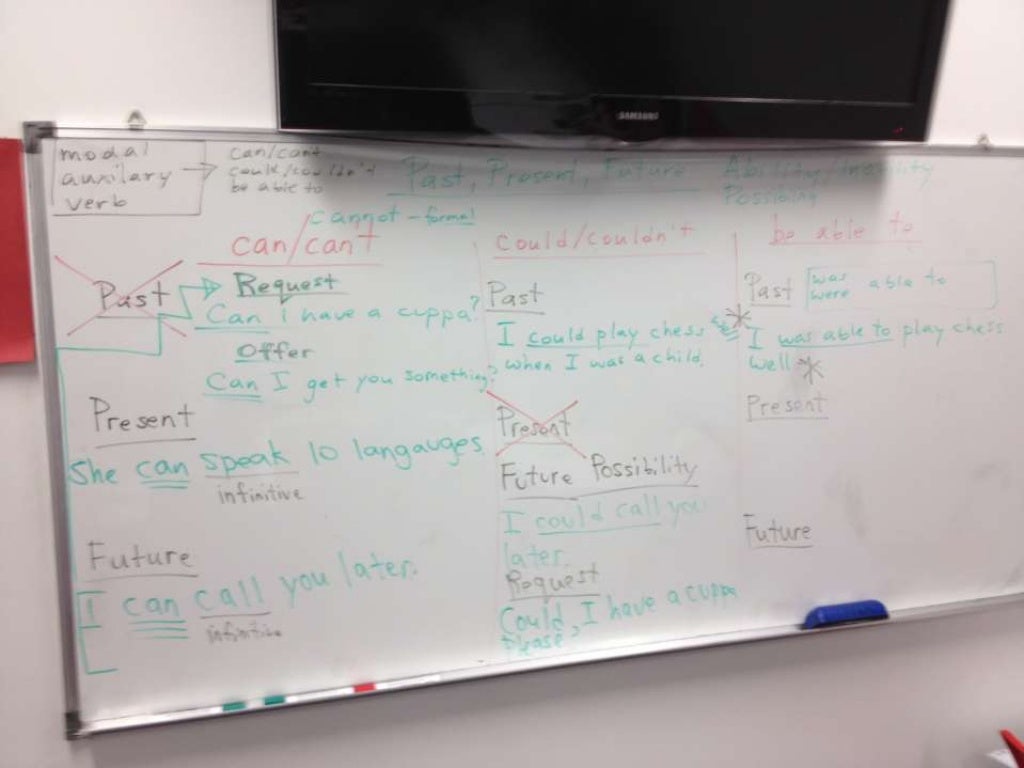 SAMSUNG
modal
auxilary
verb
can/can't
could/couldn't
be able to
Past, Present, Future
Ability/Inability
Possibility
cannot - formal
can/can't
Past
Request
Can I have a cuppa?
Offer
Can I get you something?
Present
She can speak 10 langauges
infinitive
Future
I can call you later.
infinitive
could/couldn't
Past
I could play chess
when I was a child.
Present
Future Possibility
I could call you
later.
Request
Could I have a cuppa
please?
be able to
Past
was
were
able to
I was able to play chess
well
Present
Future